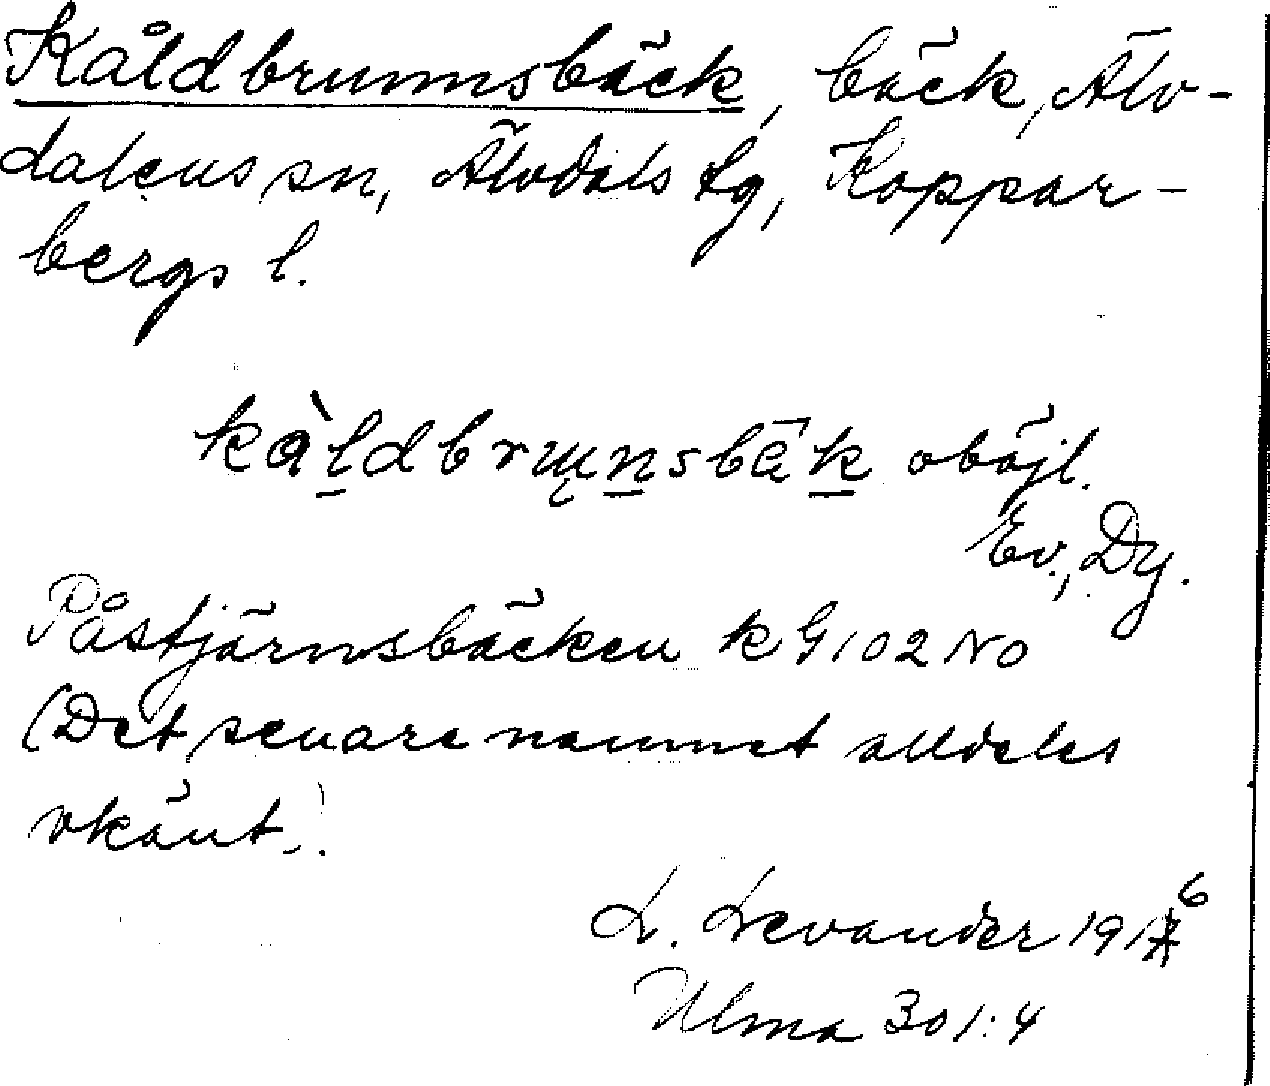 Kåldbrunnsbäck, bäck, Älv-
dalens sn, Älvdals tg, Koppar-
bergs l.
kàldbrunsbäk oböjl.
Ev., Dy.
Påstjärnsbäcken k G 102 NO
(Det senare namnet alldeles
okänt.)
L. Levander 1916
Ulma 301:4